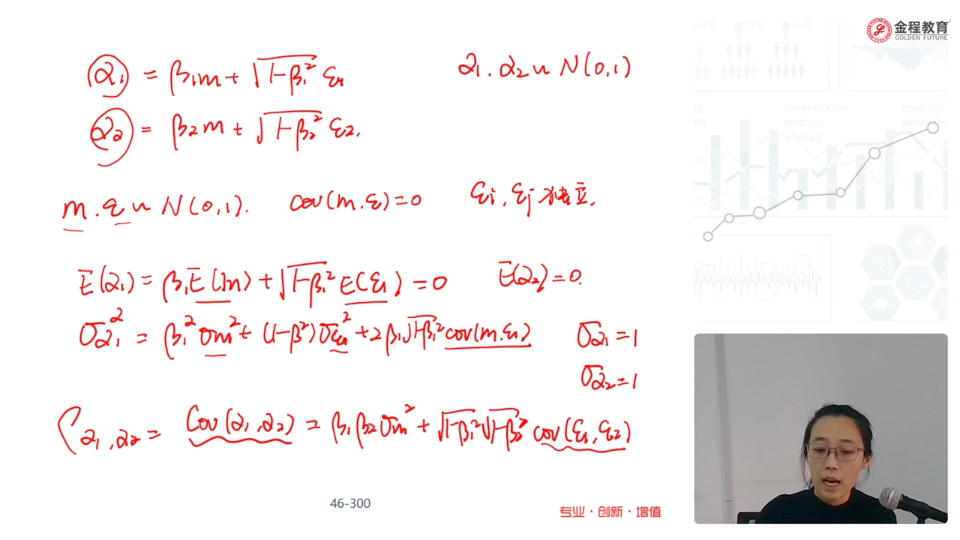 金程教育
GOLDEN FUTURE
α₁ = β₁m + √(1-β₁²) ε₁
α₁ . α₂ ~ N(0,1)
α₂ = β₂m + √(1-β₂²) ε₂.
m . ε ~ N(0,1). cov(m.ε)=0 εi, εj 独立.
E(α₁) = β₁E(m) + √(1-β₁²) E(ε₁) = 0 E(α₂)=0.
σα₁² = β₁²σm² + (1-β²)σε₁² + 2β₁√(1-β₁²) cov(m.ε₁) σα₁=1
σα₂=1
ρα₁,α₂ = Cov(α₁,α₂) = β₁β₂σm² + √(1-β₁²)√(1-β₂²) cov(ε₁,ε₂)
46-300
专业·创新·增值